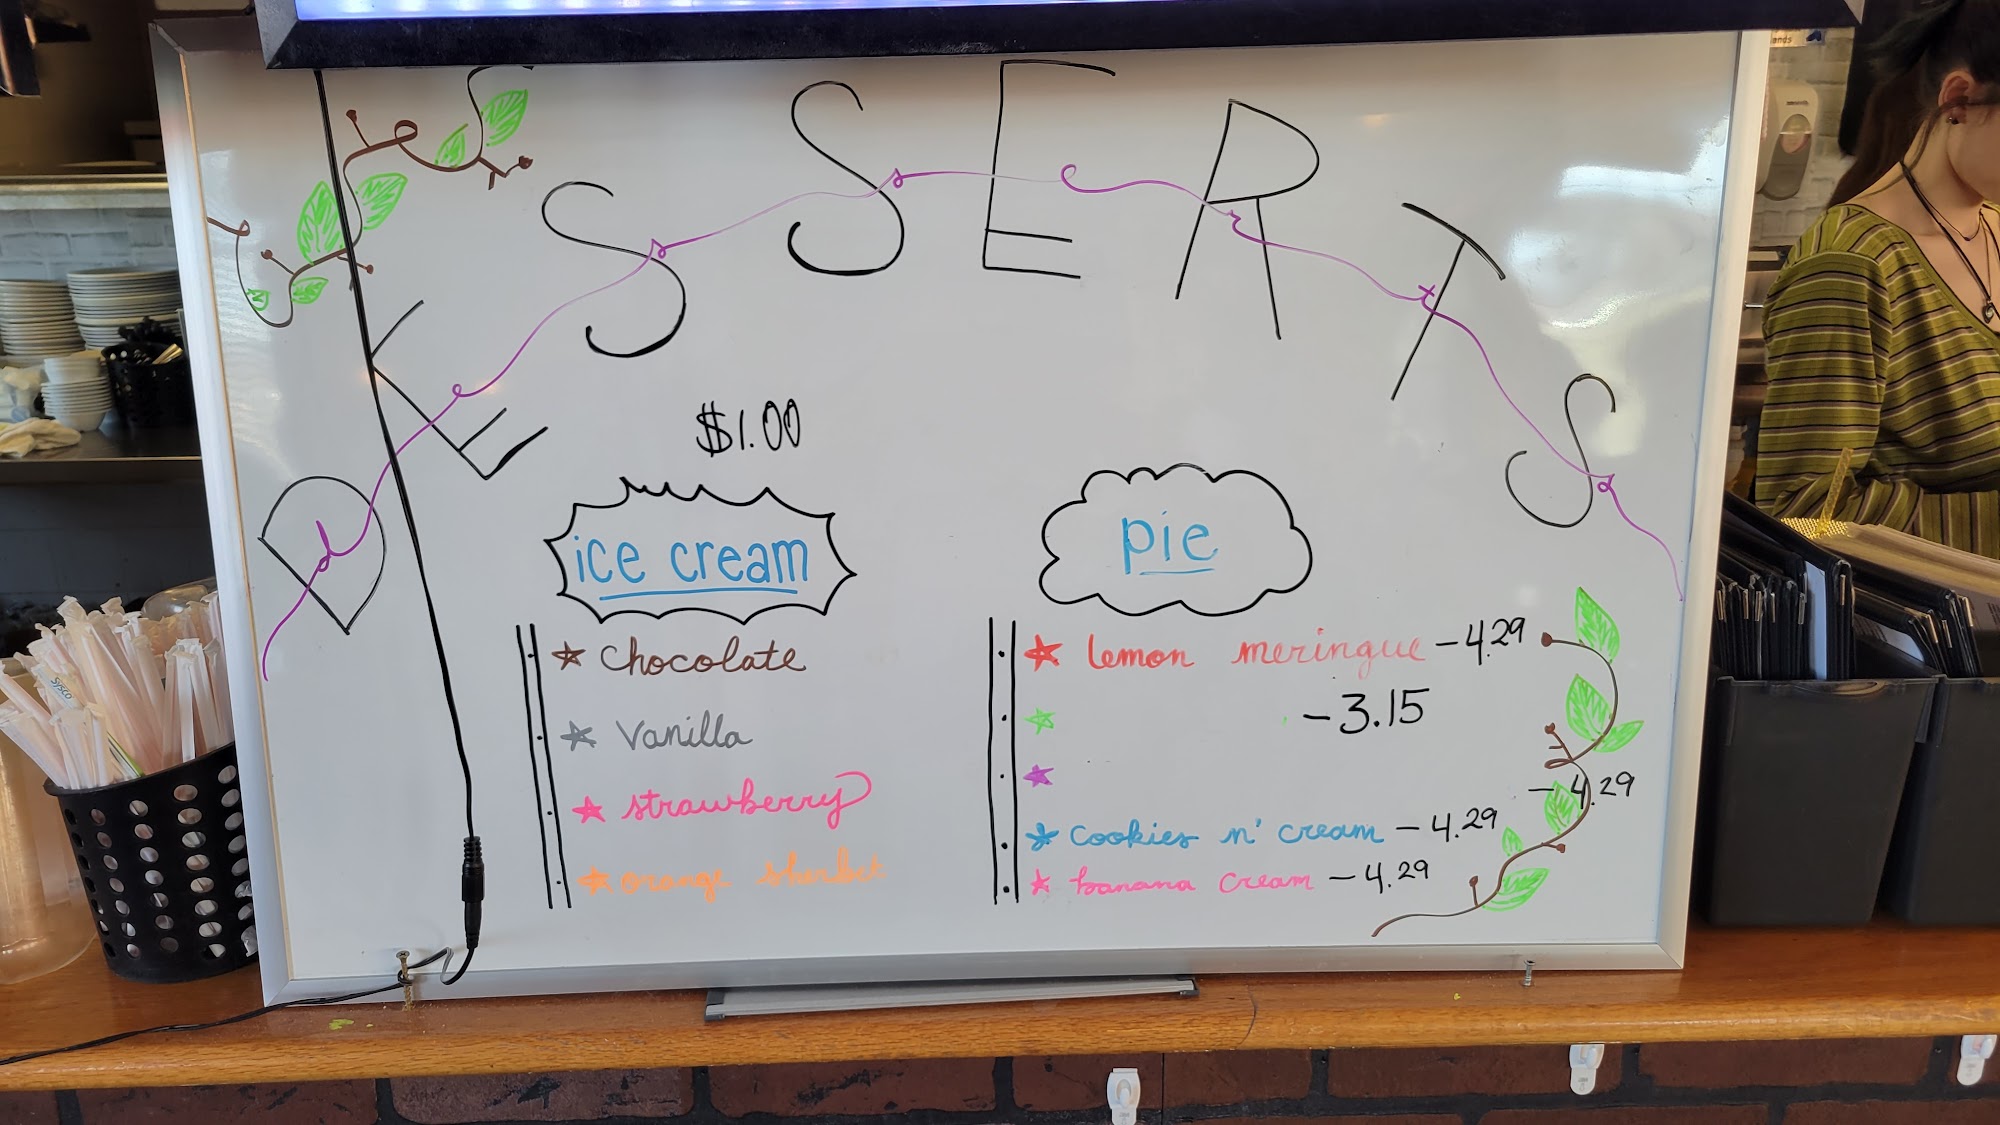 DESSERTS
desserts
$1.00
ice cream
Chocolate
Vanilla
strawberry
orange sherbet
pie
lemon meringue - 4.29
- 3.15
- 4.29
cookies n' cream - 4.29
banana cream - 4.29
Sysco